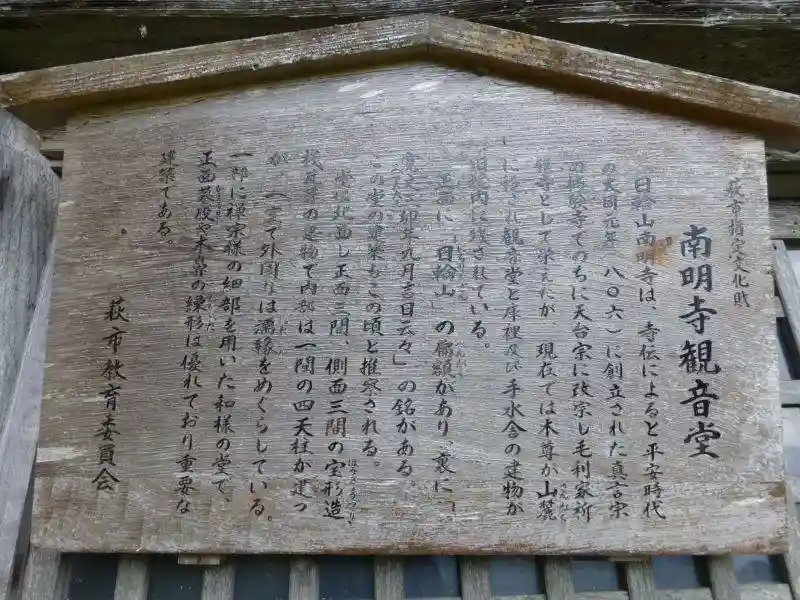 萩市指定文化財
南明寺観音堂
日輪山南明寺は、寺伝によると平安時代
の大同元年(八〇六)に創立された真言宗
の梅動寺でのちに天台宗に改宗し毛利家祈
祷寺として栄えたが、現在では本尊が山麓
に移され観音堂と庫裡及び手水舎の建物が
旧境内に残されている。
正面に「日輪山」の扁額があり、裏に「
寛文三卯年九月吉日云々」の銘がある。
この堂の建築もこの頃と推察される。
堂は北面し正面三間、側面三間の宝形造
桟瓦葺の建物で内部は一間の四天柱が建つ
が、一室で外周りは濡縁をめぐらしている。
一部に禅宗様の細部を用いた和様の堂で、
正面蟇股や木鼻の繰形は優れており重要な
建築である。
萩市教育委員会